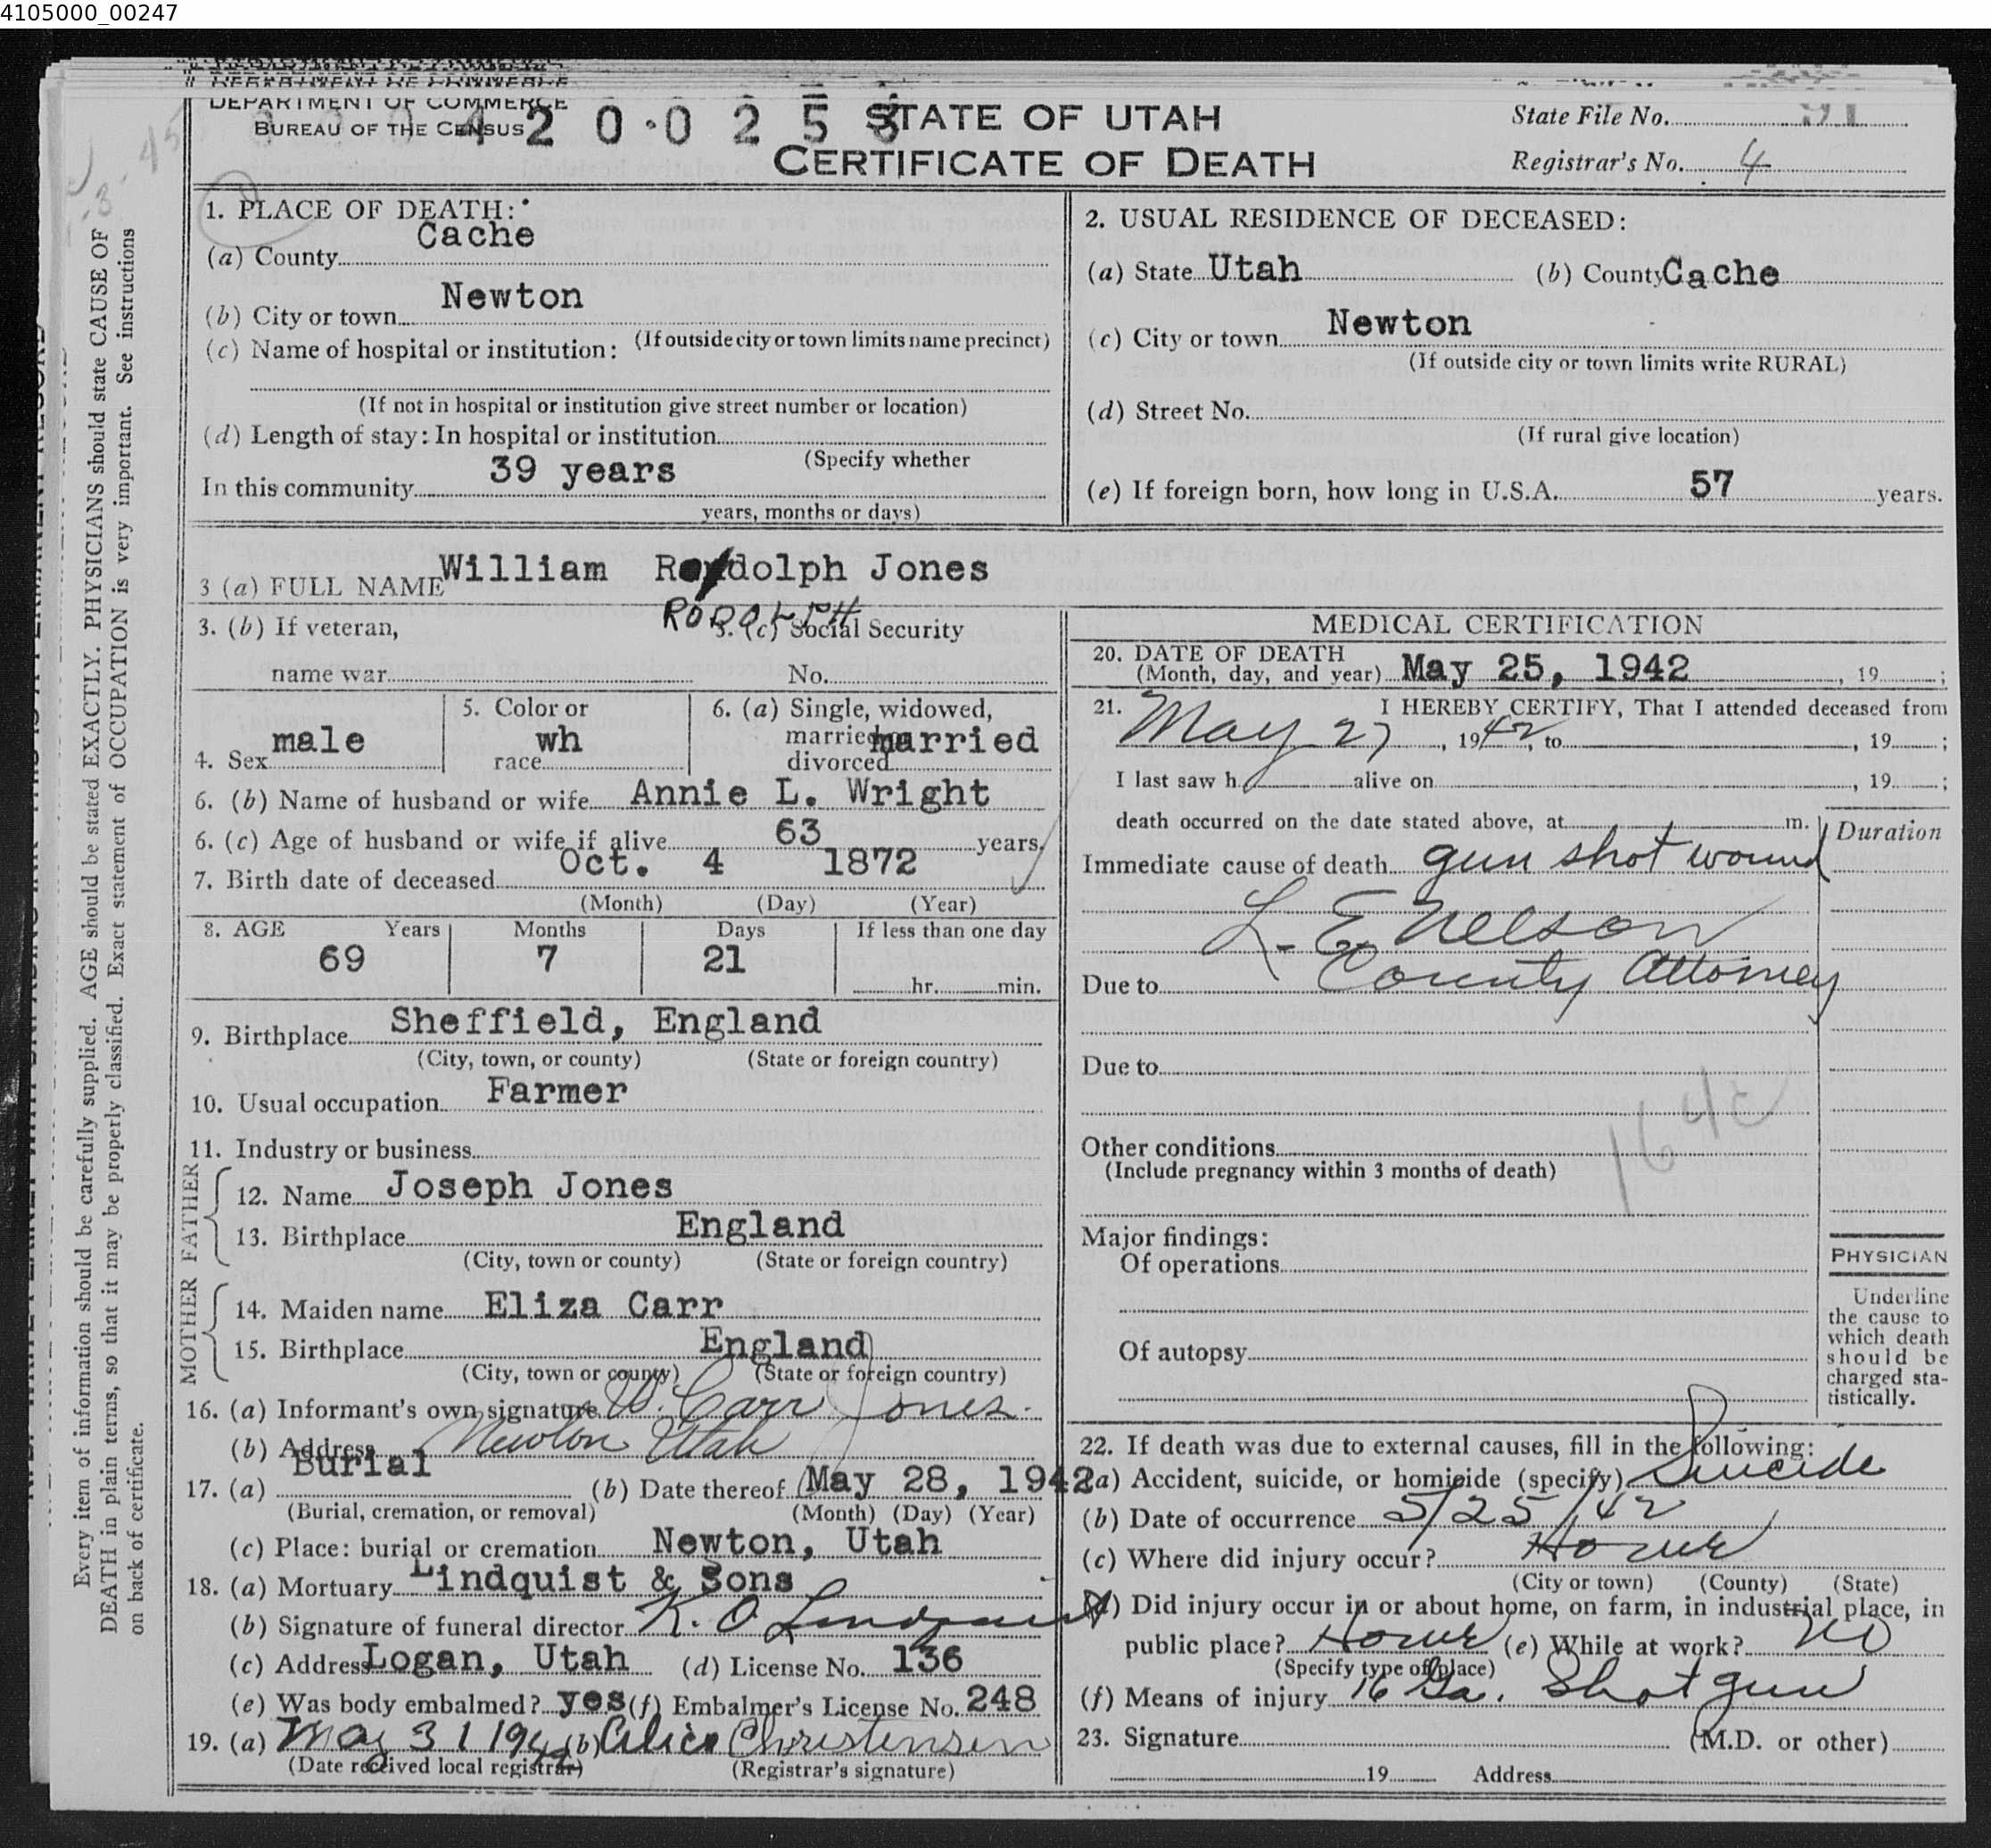 4105000_00247
DEPARTMENT OF COMMERCE
BUREAU OF THE CENSUS
4 2 0 0 2 5 3
STATE OF UTAH
CERTIFICATE OF DEATH
State File No. 91
Registrar's No. 4
Every item of information should be carefully supplied. AGE should be stated EXACTLY. PHYSICIANS should state CAUSE OF
DEATH in plain terms, so that it may be properly classified. Exact statement of OCCUPATION is very important. See instructions
on back of certificate.
1. PLACE OF DEATH:
(a) County Cache
(b) City or town Newton
(If outside city or town limits name precinct)
(c) Name of hospital or institution:
(If not in hospital or institution give street number or location)
(d) Length of stay: In hospital or institution
(Specify whether
In this community 39 years
years, months or days)
2. USUAL RESIDENCE OF DECEASED:
(a) State Utah (b) County Cache
(c) City or town Newton
(If outside city or town limits write RURAL)
(d) Street No.
(If rural give location)
(e) If foreign born, how long in U.S.A. 57 years.
3 (a) FULL NAME William Rondolph Jones
RODOLPH
3. (b) If veteran,
name war
3. (c) Social Security
No.
4. Sex male
5. Color or
race wh
6. (a) Single, widowed,
married or
divorced married
6. (b) Name of husband or wife Annie L. Wright
6. (c) Age of husband or wife if alive 63 years.
7. Birth date of deceased Oct. 4 1872
(Month) (Day) (Year)
8. AGE Years Months Days If less than one day
69 7 21 hr. min.
9. Birthplace Sheffield, England
(City, town, or county) (State or foreign country)
10. Usual occupation Farmer
11. Industry or business
FATHER
12. Name Joseph Jones
13. Birthplace England
(City, town or county) (State or foreign country)
MOTHER
14. Maiden name Eliza Carr
15. Birthplace England
(City, town or county) (State or foreign country)
16. (a) Informant's own signature W. Carr Jones.
(b) Address Newton Utah
17. (a) Burial (b) Date thereof May 28, 1942
(Burial, cremation, or removal) (Month) (Day) (Year)
(c) Place: burial or cremation Newton, Utah
18. (a) Mortuary Lindquist & Sons
(b) Signature of funeral director K. O Lindquist
(c) Address Logan, Utah (d) License No. 136
(e) Was body embalmed? yes (f) Embalmer's License No. 248
19. (a) May 31 1942 (b) Alice Christensen
(Date received local registrar) (Registrar's signature)
MEDICAL CERTIFICATION
20. DATE OF DEATH
(Month, day, and year) May 25, 1942, 19 ;
21. I HEREBY CERTIFY, That I attended deceased from
May 27, 1942, to , 19 ;
I last saw h alive on , 19 ;
death occurred on the date stated above, at m.
Duration
Immediate cause of death gun shot wound
L. E. Nelson
Due to County Attorney
Due to
Other conditions
(Include pregnancy within 3 months of death)
Major findings:
Of operations
Of autopsy
PHYSICIAN
Underline
the cause to
which death
should be
charged sta-
tistically.
22. If death was due to external causes, fill in the following:
(a) Accident, suicide, or homicide (specify) Suicide
(b) Date of occurrence 5/25/42
(c) Where did injury occur? Home
(City or town) (County) (State)
(d) Did injury occur in or about home, on farm, in industrial place, in
public place? Home (e) While at work? no
(Specify type of place)
(f) Means of injury 16 Ga. Shotgun
23. Signature (M.D. or other)
19 Address